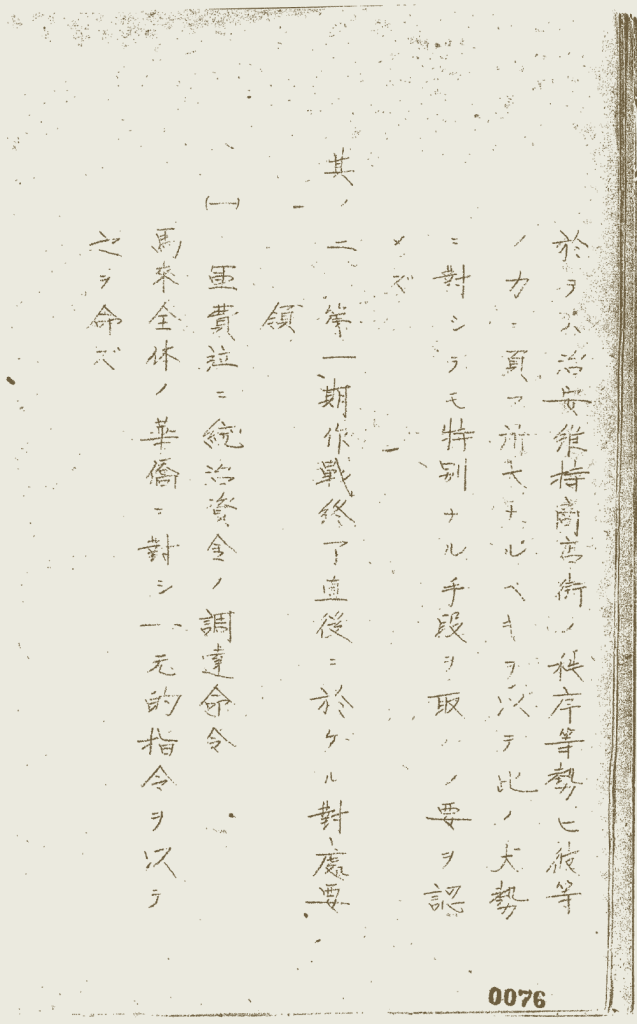 於ヲ以治安維持商店街ノ秩序等勢ヒ彼等
ノ力ニ頁フ所大ナルベキヲ以テ此ノ大勢
ニ對シテモ特別ナル手段ヲ取ルノ要ヲ認
メズ
其ノ二 第一期作戰終了直後ニ於ケル對處要
領
(一) 軍費竝ニ統治資金ノ調達命令
馬來全体ノ華僑ニ對シ一元的指令ヲ以テ
之ヲ命ズ
0076